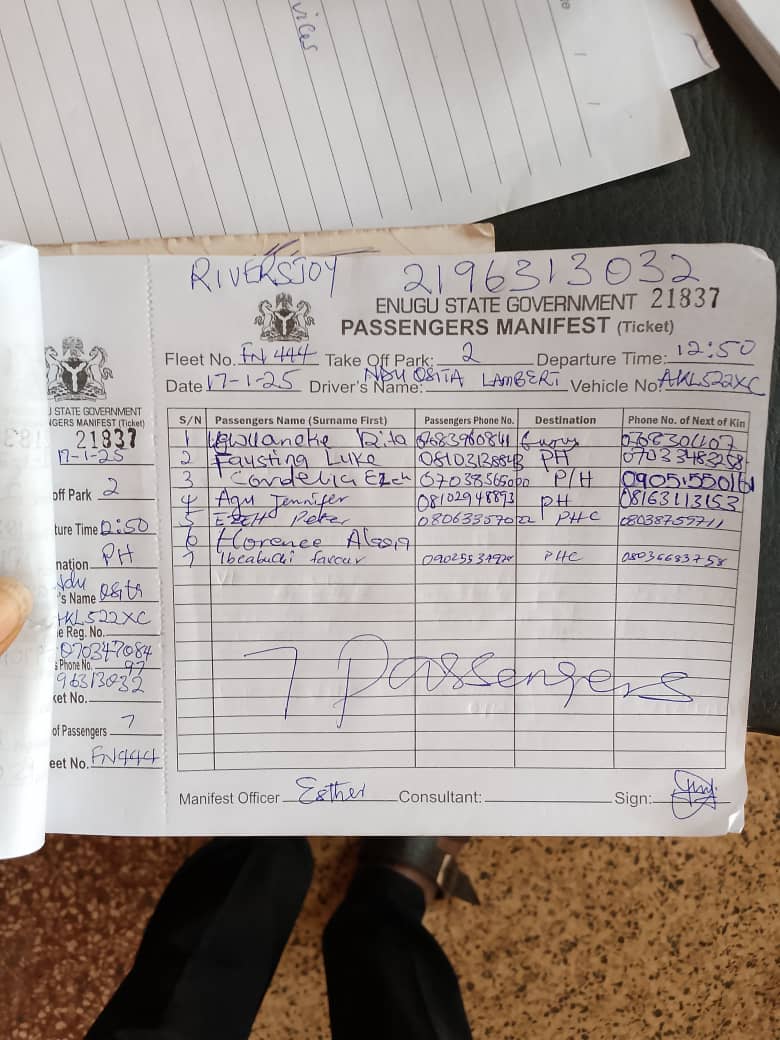 vices
RIVERSJOY 2196313032
ENUGU STATE GOVERNMENT 21837
PASSENGERS MANIFEST (Ticket)
Fleet No. FN 444 Take Off Park: 2 Departure Time: 12:50
Date 17-1-25 Driver's Name: NDU OSITA LAMBERT Vehicle No: AKL522XC
S/N Passengers Name (Surname First) Passengers Phone No. Destination Phone No. of Next of Kin
1 Rita
2 Fausting Luke PH
3 Cordelia Ezeh P/H
4 Agu Jennifer 08102948893 PH 08163113153
5 EZEH Peter PHC 08038755711
6 Florence
7 Ibeabuchi favour PHC 08036683758
7 Passengers
Manifest Officer Esther Consultant: Sign:
STATE GOVERNMENT
NGERS MANIFEST (Ticket)
21837
17-1-25
off Park 2
ture Time 2:50
nation PH
Ndu
's Name Osita
AKL522XC
e Reg. No.
070347084
s Phone No. 97
96313032
ket No.
of Passengers 7
eet No. FN444